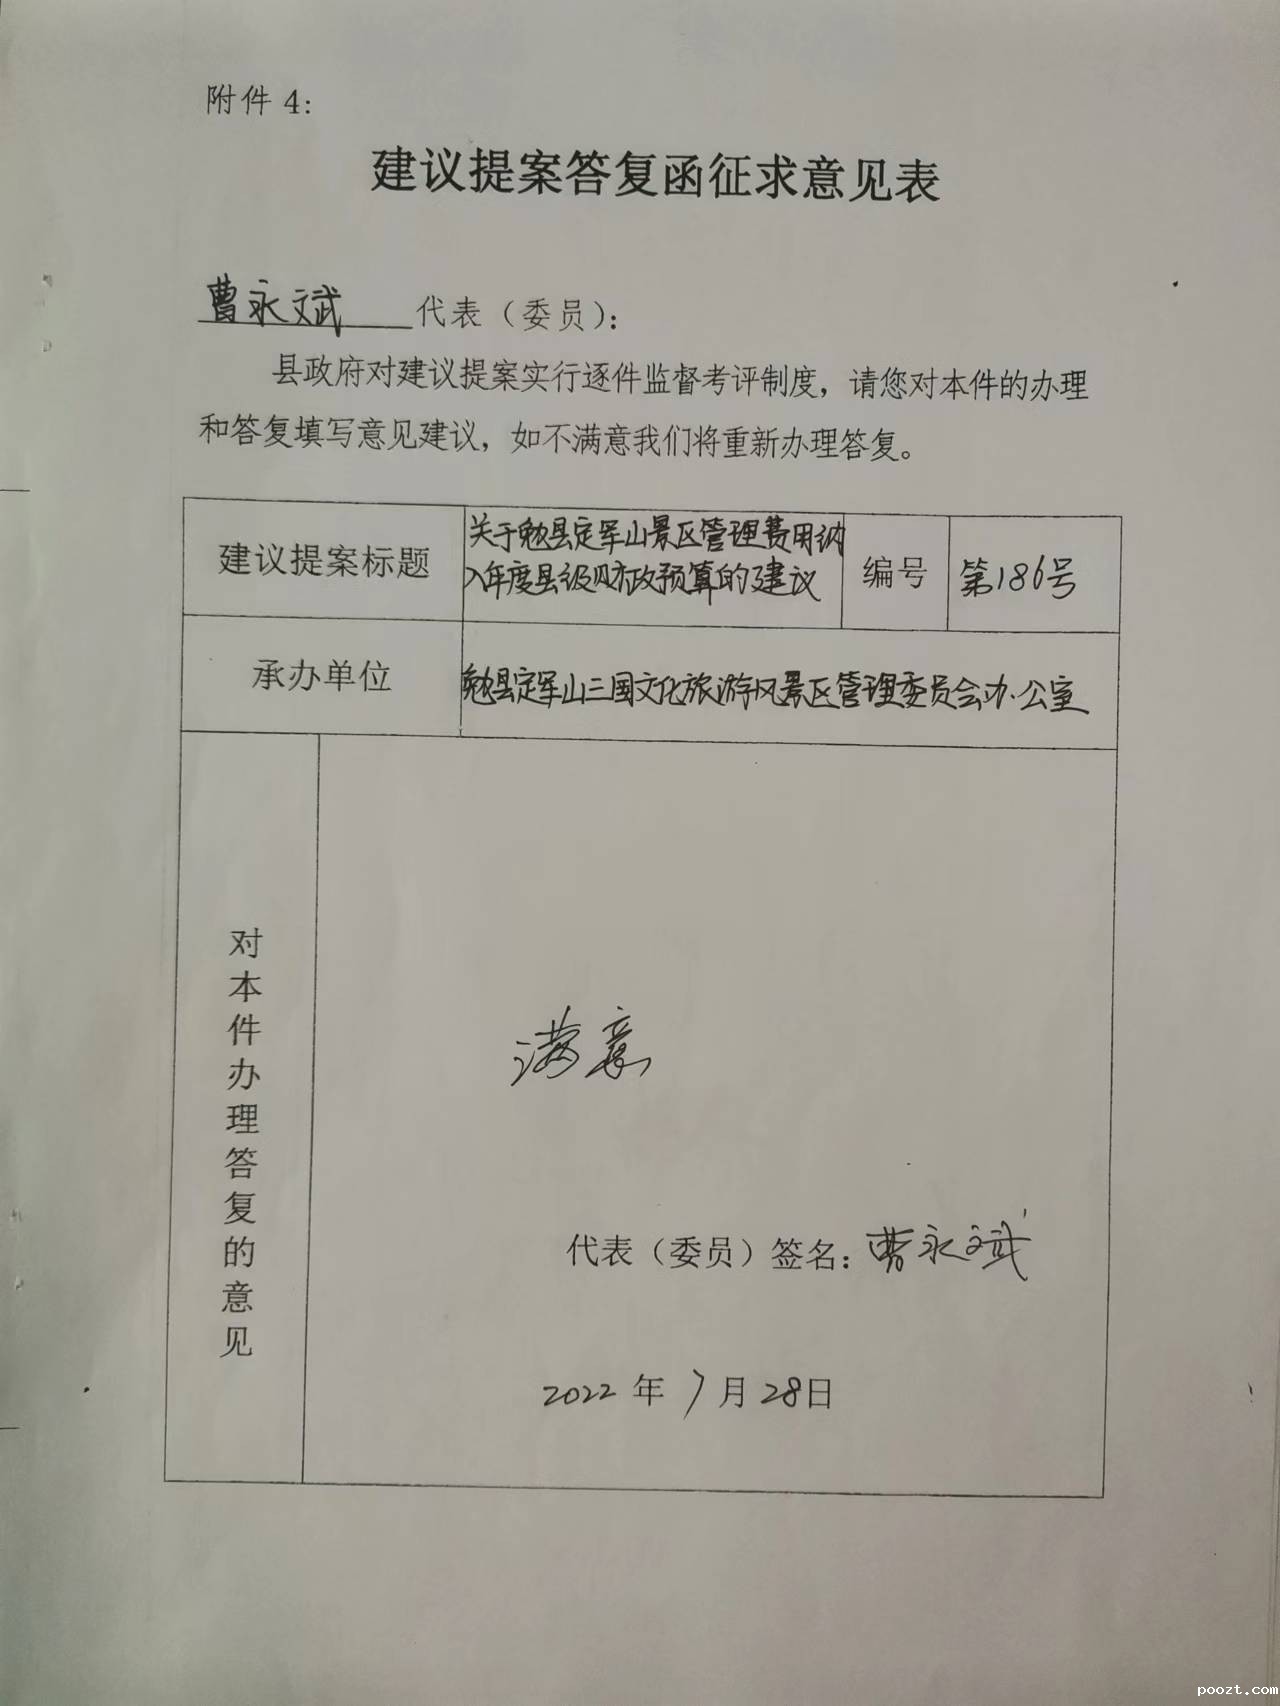 附件 4：
建议提案答复函征求意见表
曹永斌 代表（委员）：
县政府对建议提案实行逐件监督考评制度，请您对本件的办理
和答复填写意见建议，如不满意我们将重新办理答复。
建议提案标题
关于勉县定军山景区管理费用纳
入年度县级财政预算的建议
编号
第186号
承办单位
勉县定军山三国文化旅游风景区管理委员会办公室
对本件办理答复的意见
满意
代表（委员）签名：曹永斌
2022 年 7 月 28日
poozt.com